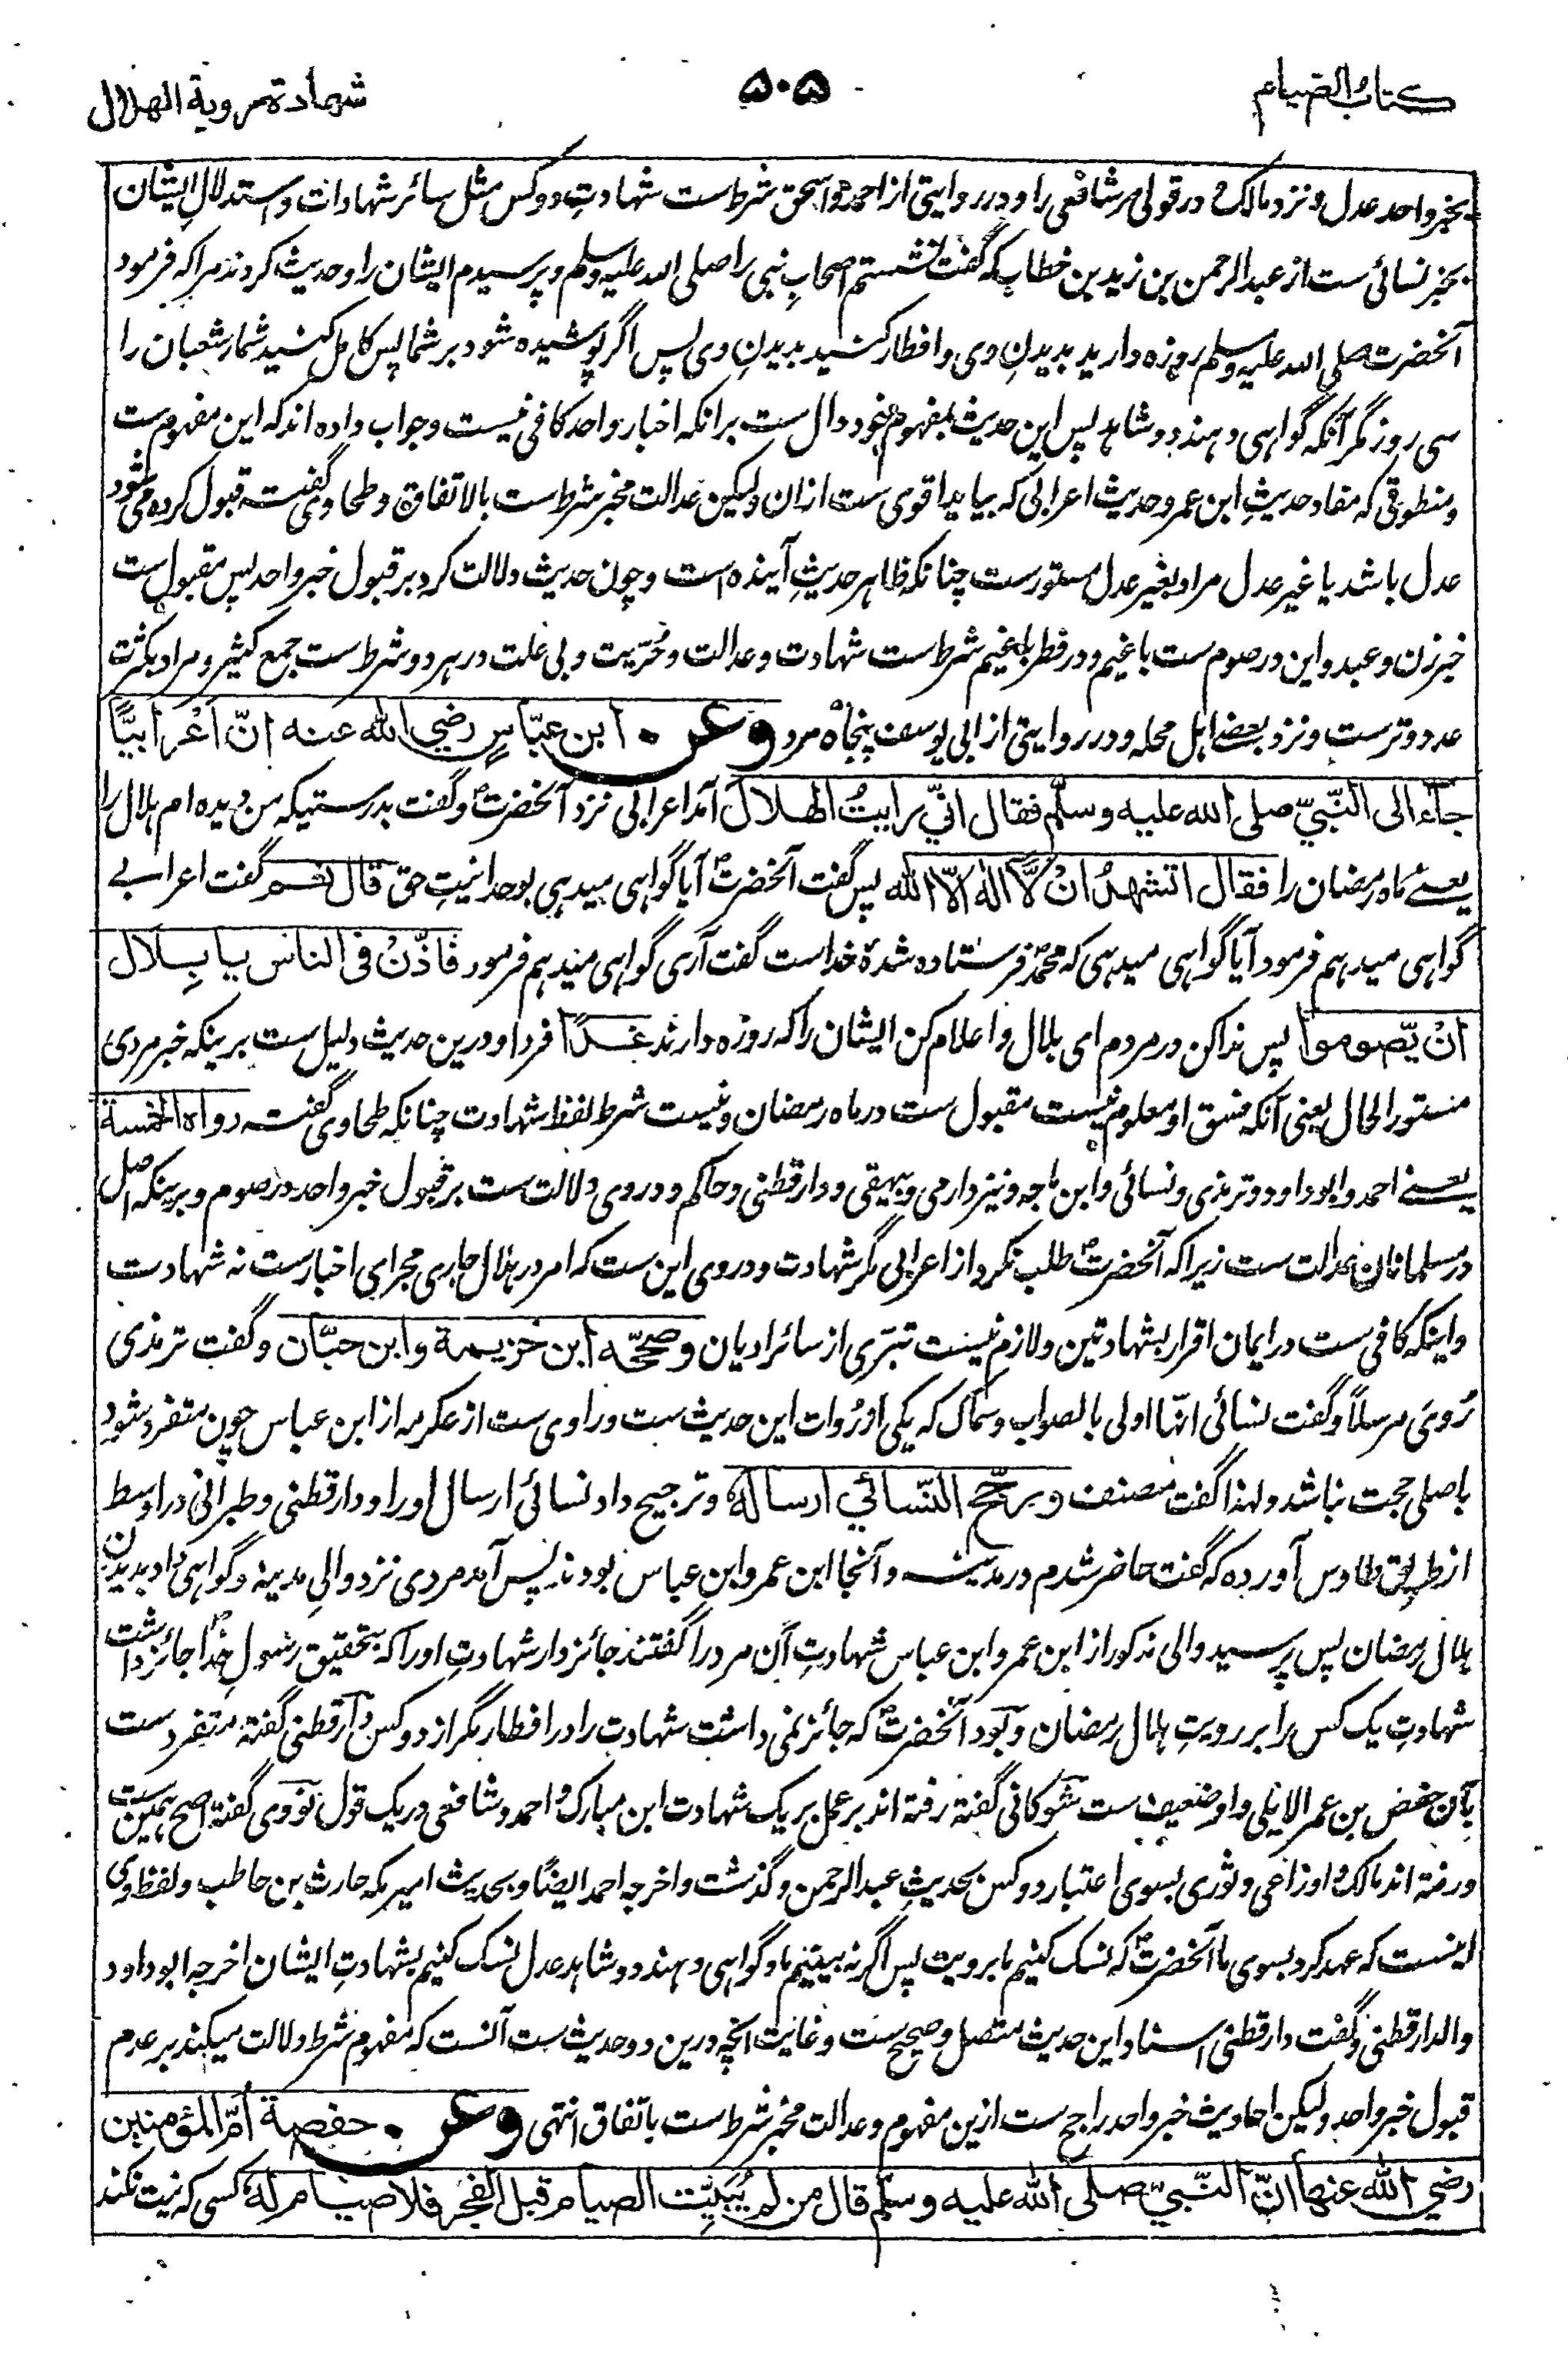 كتاب الصيام
۵۰۵
شهادة روية الهلال
بخبر واحد عدل و نزد مالک و در قولی مر شافعی را و در روایتی از احمد و اسحق شرط ست شهادتِ دو کس مثل سائر شهادات و استدلالِ ایشان
بخبر نسائی ست از عبد الرحمن بن زید بن خطاب که گفت نشستم اصحابِ نبی را صلی الله علیه وسلم و پرسیدم ایشان را و حدیث کردند مرا که فرمود
آنحضرت صلی الله علیه وسلم روزه دارید بدیدنِ وی و افطار کنید بدیدنِ وی پس اگر پوشیده شود بر شما پس کامل کنید شمار شعبان را
سی روز مگر آنکه گواهی دهند دو شاهد پس این حدیث بمفهوم خود دال ست برانکه اخبار واحد کافی نیست و جواب داده اند که این مفهوم ست
و منطوقی که مفاد حدیثِ ابن عمر و حدیث اعرابی که بیاید اقوی ست ازان ولیکن عدالت مخبر شرط ست بالاتفاق و طحاوی گفته قبول کرده می شود
عدل باشد یا غیر عدل مراد بغیر عدل مستور ست چنانکه ظاهر حدیثِ آینده است و چون حدیث دلالت کرد بر قبول خبر واحد پس مقبول ست
خبر زن و عبد و این در صوم ست با غیم و در فطر با غیم شرط ست شهادت و عدالت و حُرّیت و بی علت در هر دو شرط ست جمع کثیر و مراد بکثرت
عدد و تر ست و نزد بعض اهل محله و در روایتی از ابی یوسف پنجاه مرد وعن ابن عبّاسٍ رضي الله عنه انّ اعْرابيًّا
جآء الى النّبيّ صلى الله عليه وسلّم فقال انّي رايتُ الهلالَ آمد اعرابی نزد آنحضرت و گفت بدرستیکه من دیده ام هلال را
یعنے ماه رمضان را فقال اتشهدُ انْ لَّا اله الّا الله پس گفت آنحضرت آیا گواهی میدهی بوحدانیتِ حق قال نعم گفت اعرابے
گواهی میدهم فرمود آیا گواهی میدهی که محمد فرستاده شدهٔ خداست گفت آری گواهی میدهم فرمود فاذّنْ في الناس يا بلال
انْ يّصوموا پس ندا کن در مردم ای بلال و اعلام کن ایشان را که روزه دارند غدًا فردا و درین حدیث دلیل ست برینکه خبر مردی
مستور الحال یعنی آنکه فسق او معلوم نیست مقبول ست در ماه رمضان و نیست شرط لفظ شهادت چنانکه طحاوی گفته رواه الخمسة
یعنے احمد و ابو داود و ترمذی و نسائی و ابن ماجه و نیز دارمی و بیهقی و دارقطنی و حاکم و در وی دلالت ست بر قبول خبر واحد در صوم و برینکه اصل
در مسلمانان عدالت ست زیراکه آنحضرت طلب نکرد از اعرابی مگر شهادت و در وی این ست که امر در هلال جاری مجرای اخبار ست نه شهادت
و اینکه کافی ست در ایمان اقرار بشهادتین و لازم نیست تبرّی از سائر ادیان وصححّه ابن خزيمة وابن حبّان و گفت ترمذی
رُوی مرسلًا و گفت نسائی انّها اولی بالصواب و سماک که یکی از رُوات این حدیث ست و راوی ست از عکرمه از ابن عباس چون متفرد شود
باصلی حجت نباشد و لهذا گفت مصنف ورجّح النّسائي ارساله و ترجیح داد نسائی ارسال او را و دارقطنی و طبرانی در اوسط
از طریق طاوس آورده که گفت حاضر شدم در مدینه و آنجا ابن عمر و ابن عباس بودند پس آمد مردی نزد والیِ مدینه و گواهی داد بدیدن
هلال رمضان پس پرسید والی مذکور از ابن عمر و ابن عباس شهادتِ آن مرد را گفتند جائز دار شهادتِ او را که بتحقیق رسولِ خدا جائز داشت
شهادتِ یک کس را بر رویتِ هلال رمضان و بود آنحضرت که جائز نمی داشت شهادت را در افطار مگر از دو کس دارقطنی گفته متفرد ست
بآن حفص بن عمر الایلی و او ضعیف ست شوکانی گفته رفته اند بر عمل بر یک شهادت ابن مبارک و احمد و شافعی در یک قول نووی گفته اصح همین ست
و رفته اند مالک و اوزاعی و ثوری بسوی اعتبار دو کس بحدیثِ عبد الرحمن و گذشت و اخرجه احمد ایضًا و بحدیث امیر مکه حارث بن حاطب و لفظ وی
اینست که عهد کرد بسوی ما آنحضرت که نسک کنیم ما برویت پس اگر نه بینیم ما و گواهی دهند دو شاهد عدل نسک کنیم بشهادتِ ایشان اخرجه ابو داود
والدارقطنی و گفت دارقطنی اسناد این حدیث متصل و صحیح ست و غایت آنچه درین دو حدیث ست آنست که مفهوم شرط دلالت میکند بر عدم
قبول خبر واحد ولیکن احادیث خبر واحد راجح ست ازین مفهوم و عدالت مخبر شرط ست باتفاق انتهی وعن حفصة امّ المؤمنين
رضي الله عنها انّ النّبيّ صلى الله عليه وسلّم قال من لم يُبَيِّت الصيام قبل الفجر فلا صيام له کسی که نیت نکند